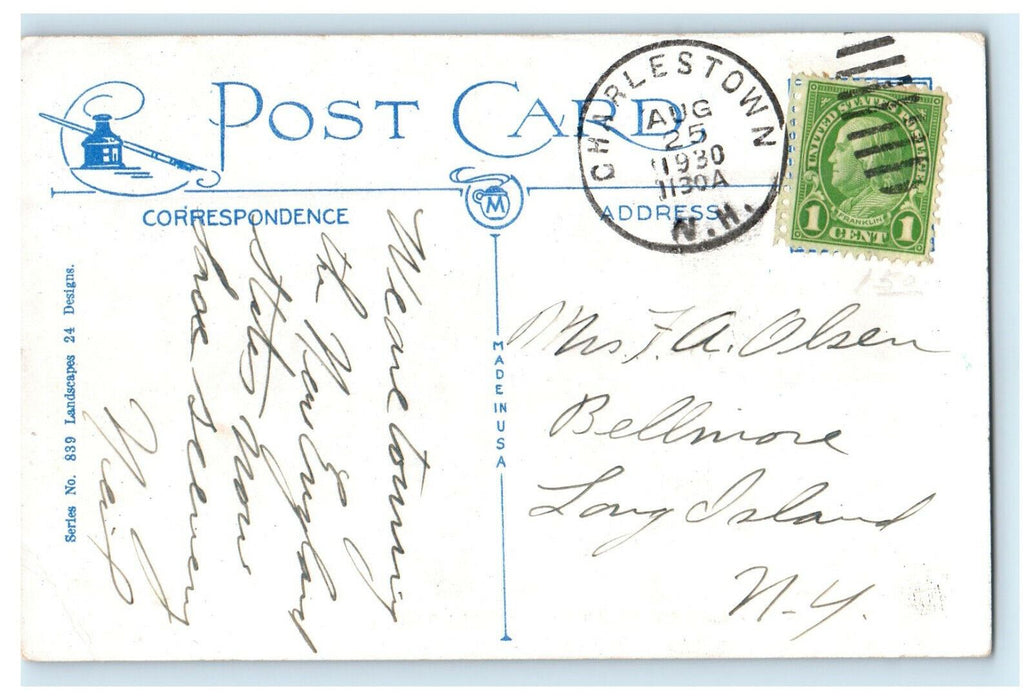 POST CARD
CHARLESTOWN
AUG
25
1930
1130A
N.H.
UNITED STATES POSTAGE
FRANKLIN
1 CENT 1
M
CORRESPONDENCE
ADDRESS
We are touring
the New England
States now
scenery
Series No. 839 Landscapes 24 Designs.
MADE IN USA
150
Mrs F. A. Olsen
Bellmore
Long Island
N-Y.